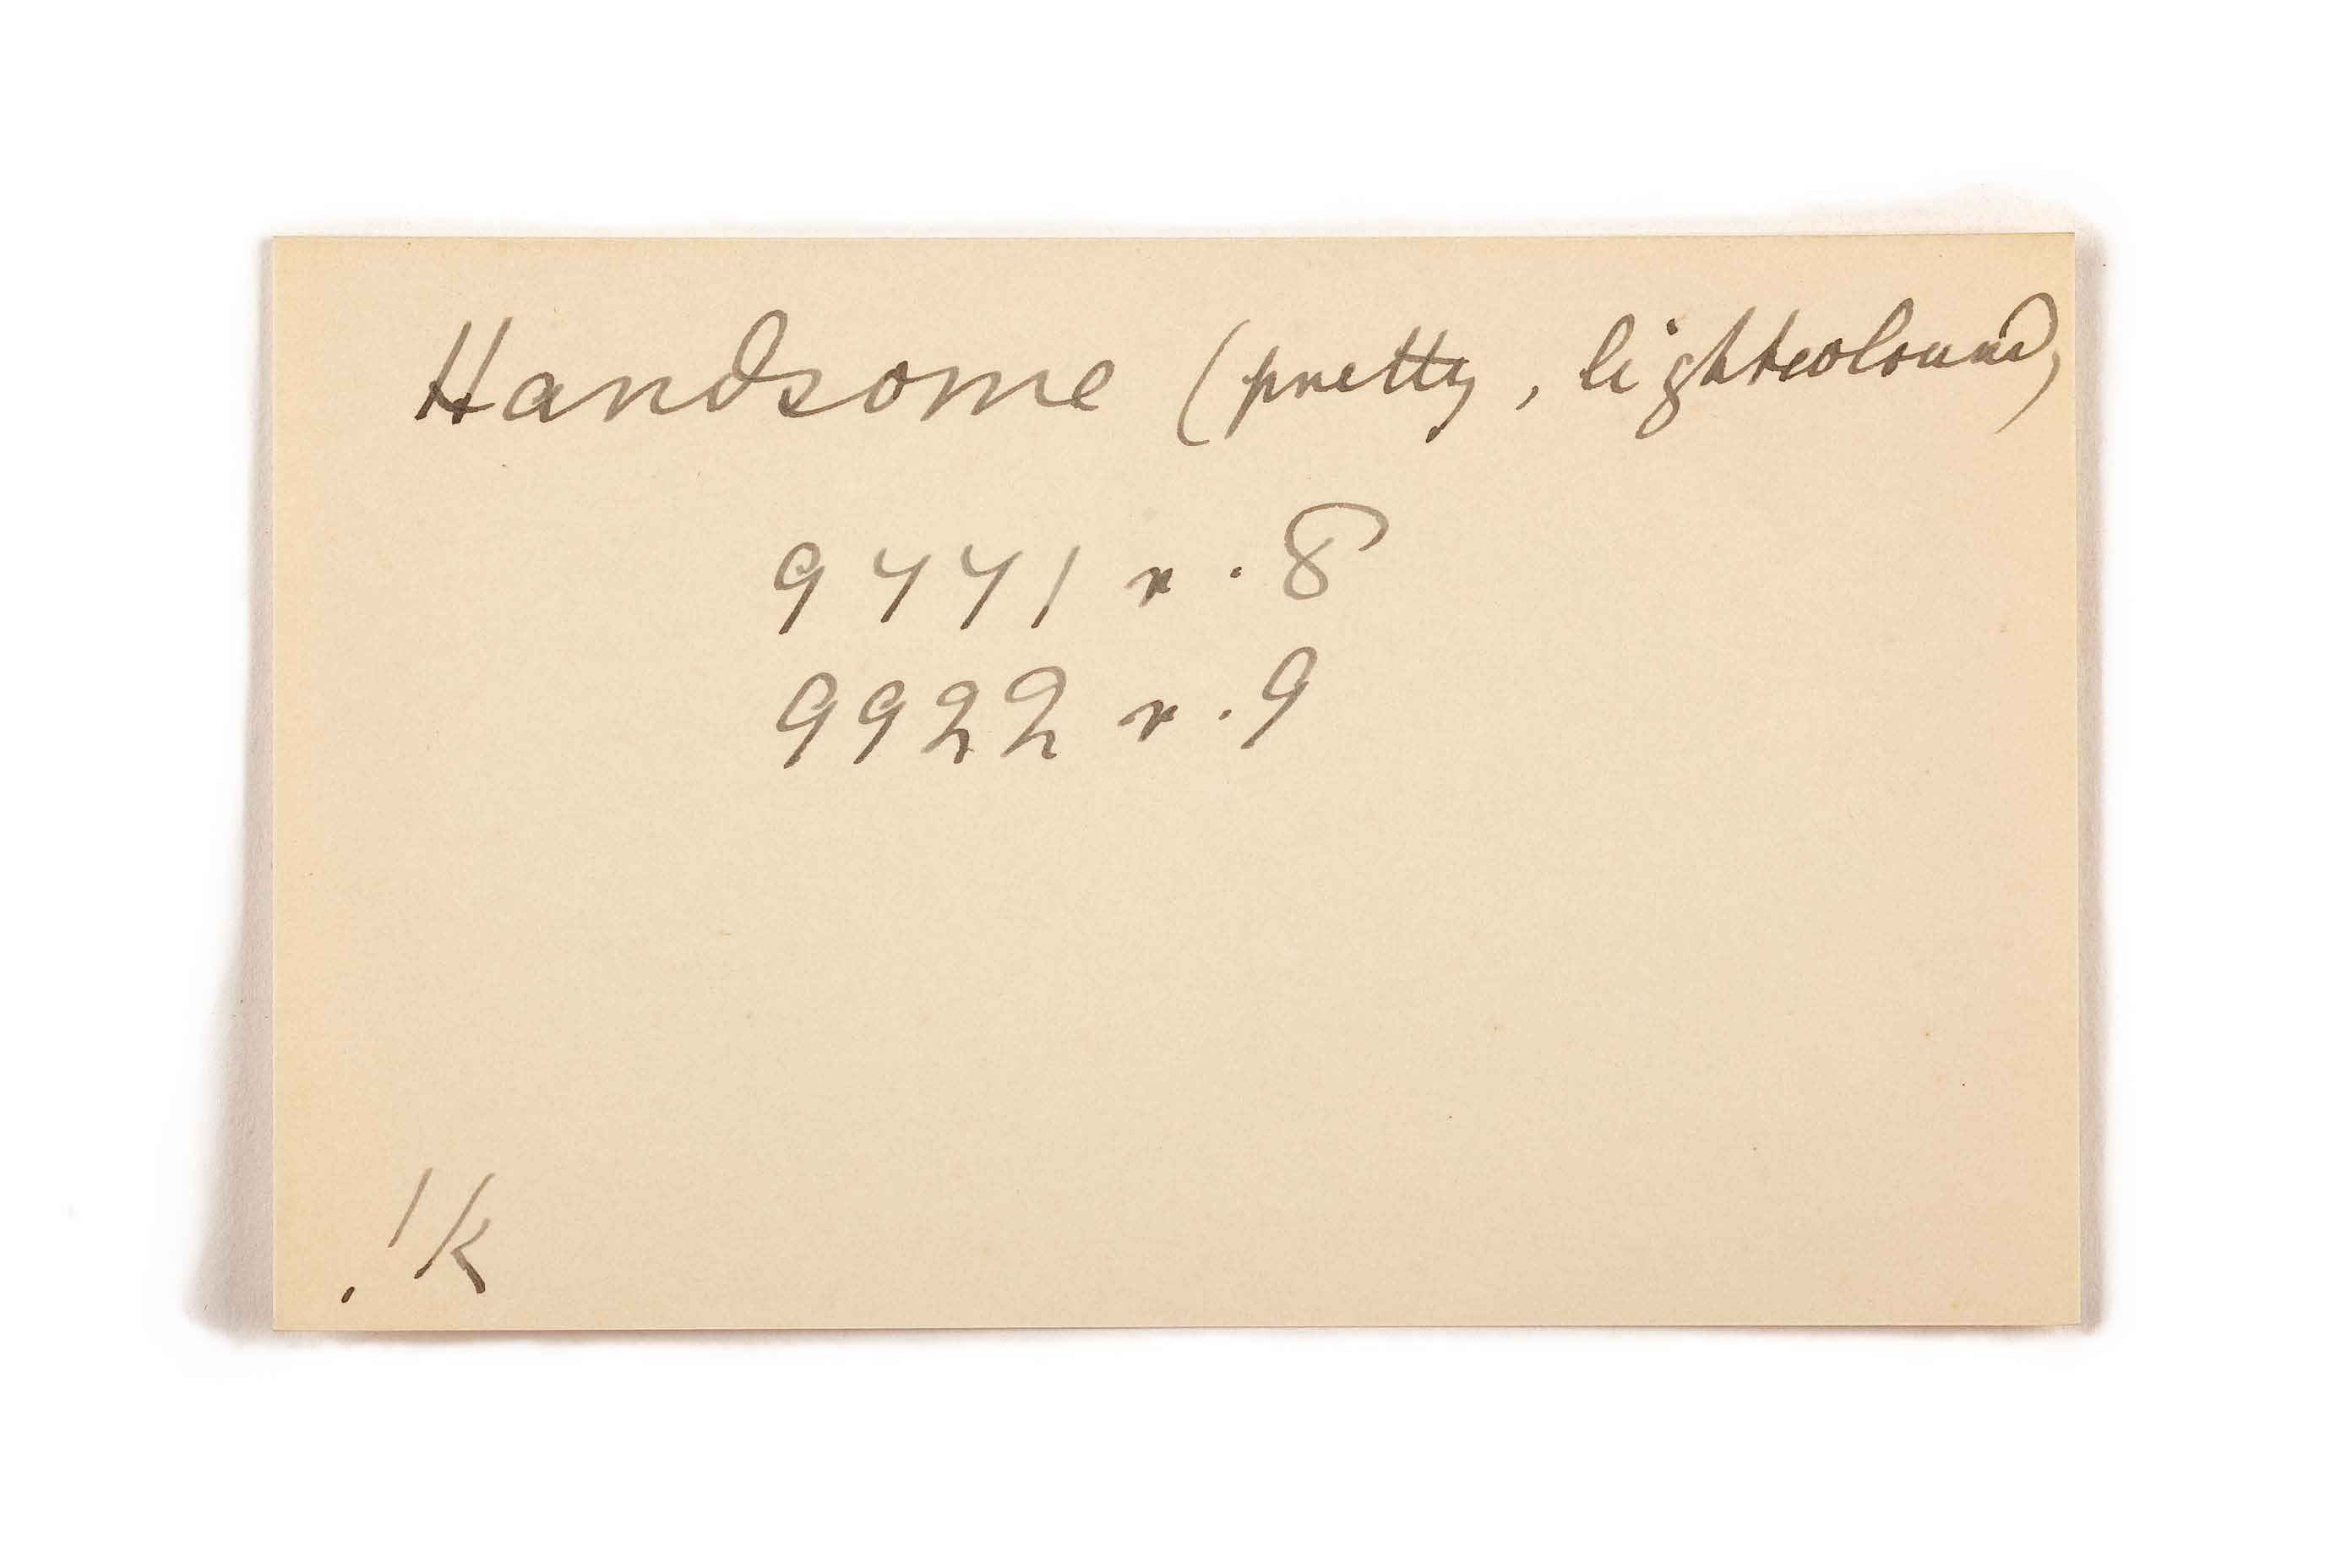 Handsome (pretty, lightcoloured)
9771 r. 8
9922 r. 9
1k